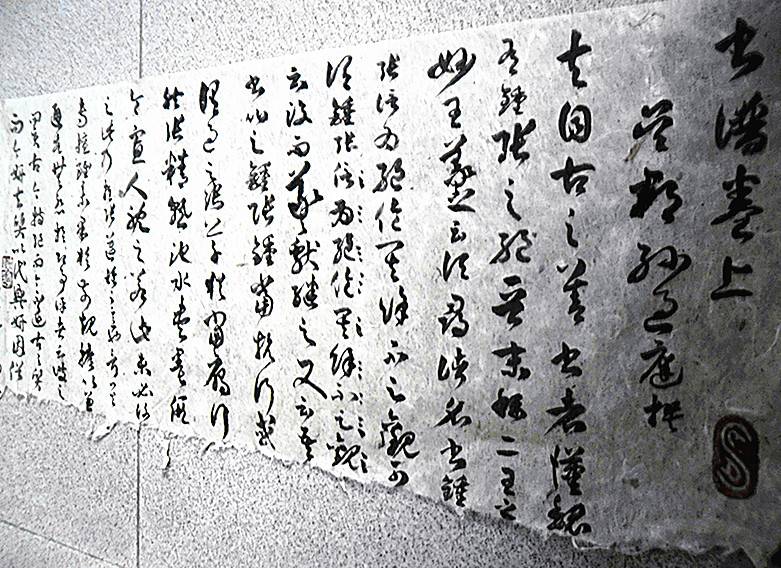 書譜卷上
吳郡孫過庭撰
夫自古之善書者漢魏
有鍾張之絕晉末稱二王之
妙王羲之云頃尋諸名書鍾
張信為絕倫其餘不足觀可
謂鍾張信為絕倫其餘不足觀
云沒而羲獻繼之又云吾
書比之鍾張鍾當抗行或
謂過之張草猶當雁行
然張精熟池水盡墨假
令寡人耽之若此未必謝
之此乃推張邁鍾之意也考其
專擅雖未果於前規摭以兼
通故無慚於即事評者云彼之
四賢古今特絕而今不逮古古質
而今妍夫質以代興妍因俗